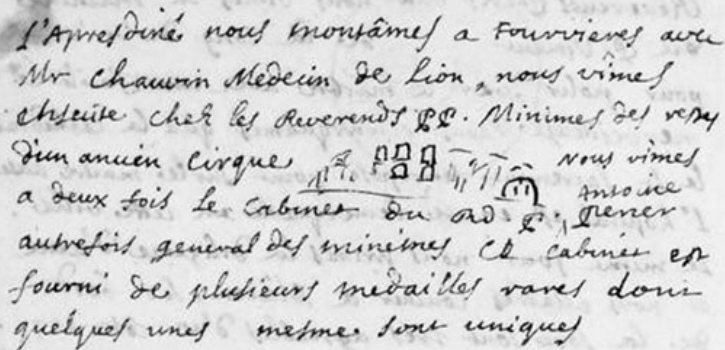 l'Apresdiné nous montâmes a Fourvieres avec
Mr Chauvin Medecin de Lion, nous vîmes
ensuite chez les Reverends PP. Minimes des restes
d'un ancien Cirque nous vîmes
a deux fois le Cabinet du Rd P. Antoine
autrefois general des minimes Ce Cabinet est
fourni de plusieurs medailles rares dont
quelques unes mesme sont uniques